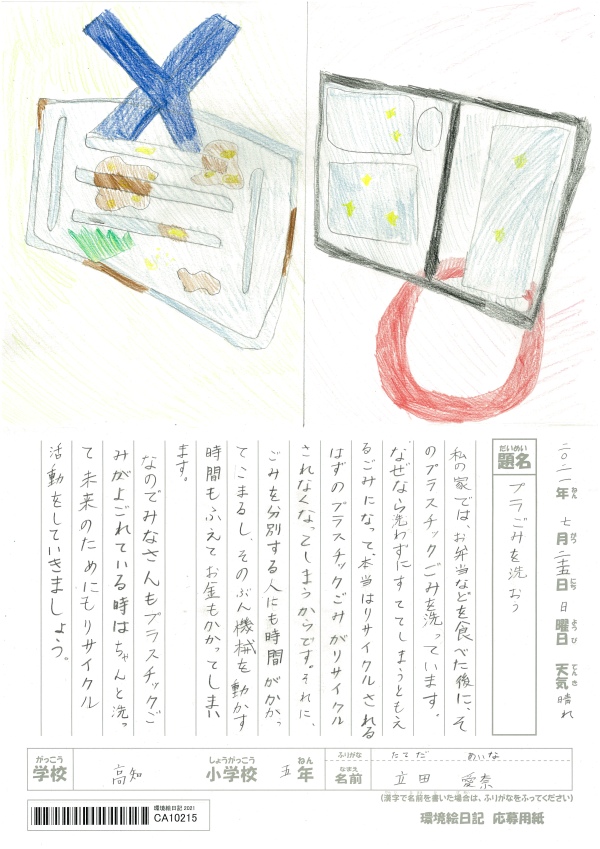 二〇二一年 七月二十五日 日曜日 天気 晴れ
ねん がつ にち ようび てんき
だいめい
題名 プラごみを洗おう
私の家では、お弁当などを食べた後に、そ
のプラスチックごみを洗っています。
なぜなら洗わずにすててしまうともえ
るごみになって、本当はリサイクルされる
はずのプラスチックごみがリサイクル
されなくなってしまうからです。それに、
ごみを分別する人にも時間がかかっ
てこまるし、そのぶん機械を動かす
時間もふえてお金もかかってしまい
ます。
なのでみなさんもプラスチックご
みがよごれている時はちゃんと洗っ
て未来のためにもリサイクル
活動をしていきましょう。
がっこう しょうがっこう ねん ふりがな たてだ めいな
学校 高知 小学校 五年 なまえ 名前 立田 愛奈
(漢字で名前を書いた場合は、ふりがなをふってください)
環境絵日記 2021
CA10215
環境絵日記 応募用紙